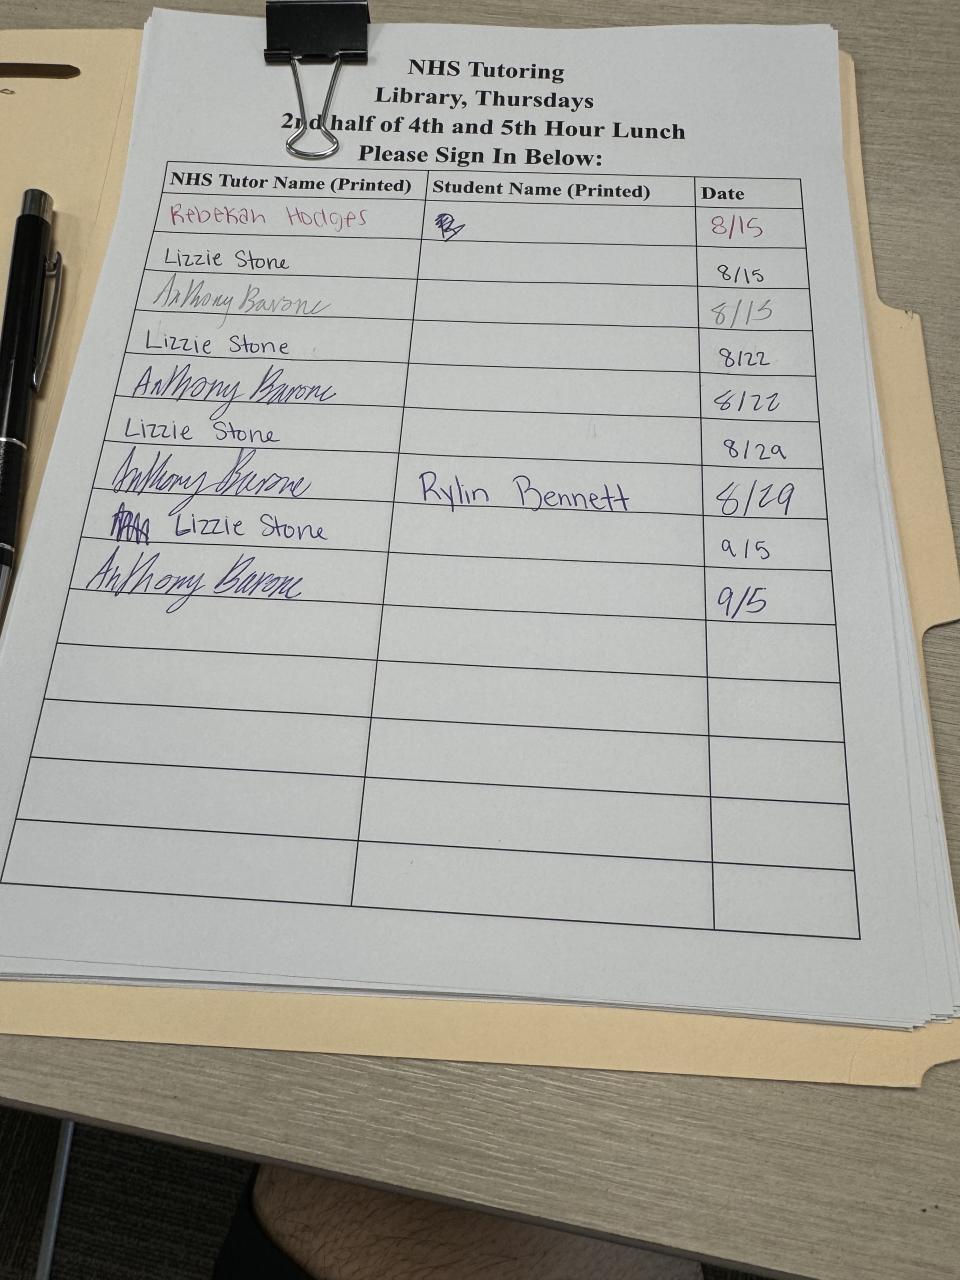 NHS Tutoring
Library, Thursdays
2nd half of 4th and 5th Hour Lunch
Please Sign In Below:
NHS Tutor Name (Printed) Student Name (Printed) Date
Rebekah Hodges 8/15
Lizzie Stone 8/15
Anthony Barone 8/15
Lizzie Stone 8/22
Anthony Barone 8/22
Lizzie Stone 8/29
Anthony Barone Rylin Bennett 8/29
Lizzie Stone 9/5
Anthony Barone 9/5